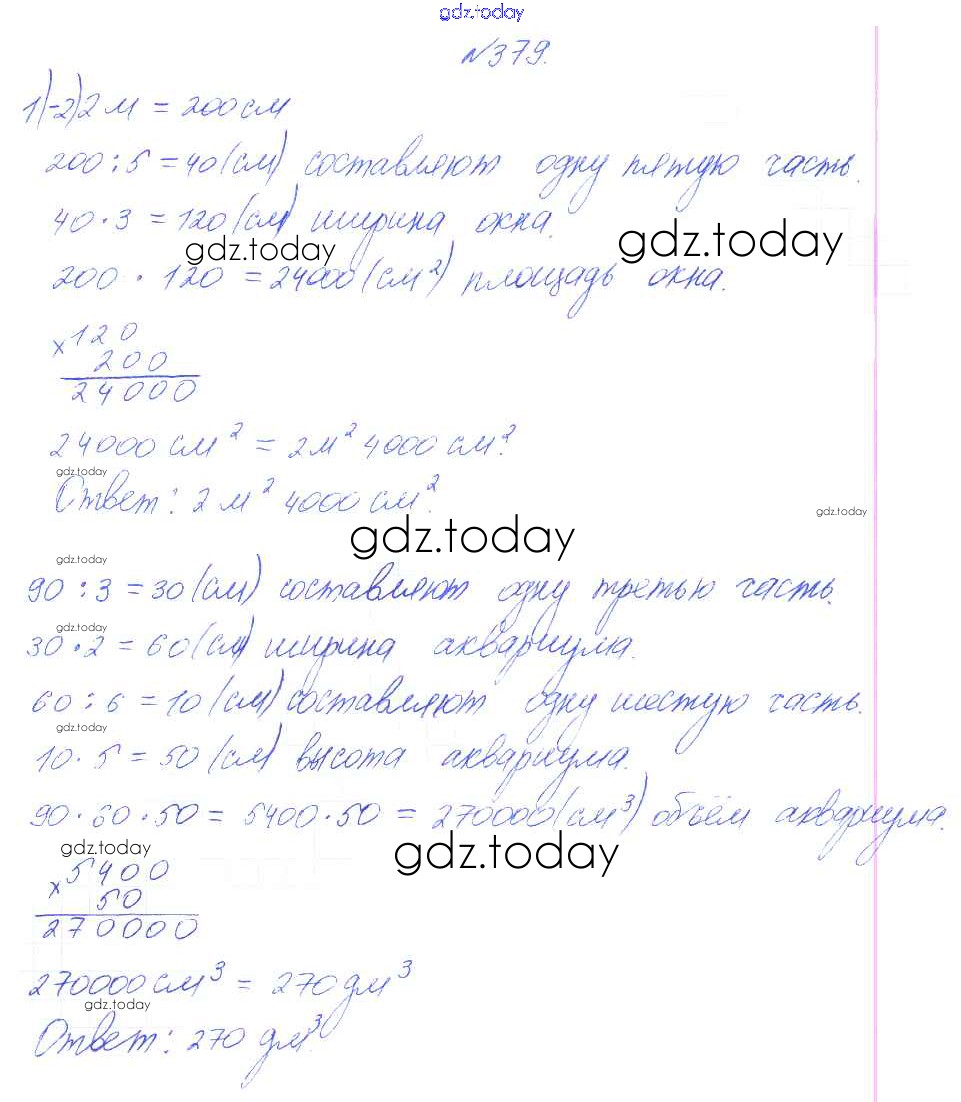 gdz.today
№379.
1)-2) 2 м = 200 см
200 : 5 = 40 (см) составляют одну пятую часть.
40 · 3 = 120 (см) ширина окна.
gdz.today
gdz.today
200 · 120 = 24000 (см²) площадь окна.
× 120
200
24000
24000 см² = 2 м² 4000 см².
gdz.today
Ответ: 2 м² 4000 см².
gdz.today
gdz.today
gdz.today
90 : 3 = 30 (см) составляют одну третью часть.
gdz.today
30 · 2 = 60 (см) ширина аквариума.
60 : 6 = 10 (см) составляют одну шестую часть.
gdz.today
10 · 5 = 50 (см) высота аквариума.
90 · 60 · 50 = 5400 · 50 = 270000 (см³) объём аквариума.
gdz.today
gdz.today
× 5400
50
270000
270000 см³ = 270 дм³
gdz.today
Ответ: 270 дм³.